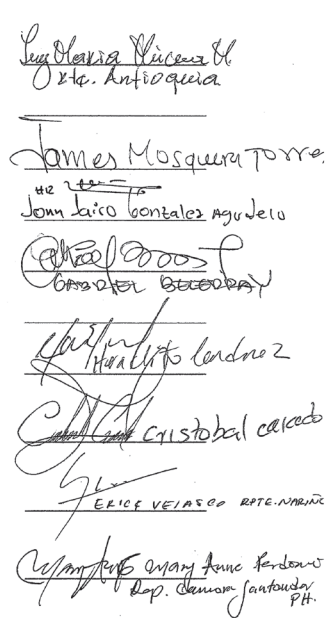 Luz Maria Múnera M
Rte. Antioquia
James Mosquera Torres
#12
John Jairo Gonzalez Agudelo
GABRIEL BECERRA Y
Heraclito Landinez
Cristobal Caicedo
ERICK VELASCO RPTE. NARIÑO
Mary Anne Perdomo
Rep. Camara Santander
PH.